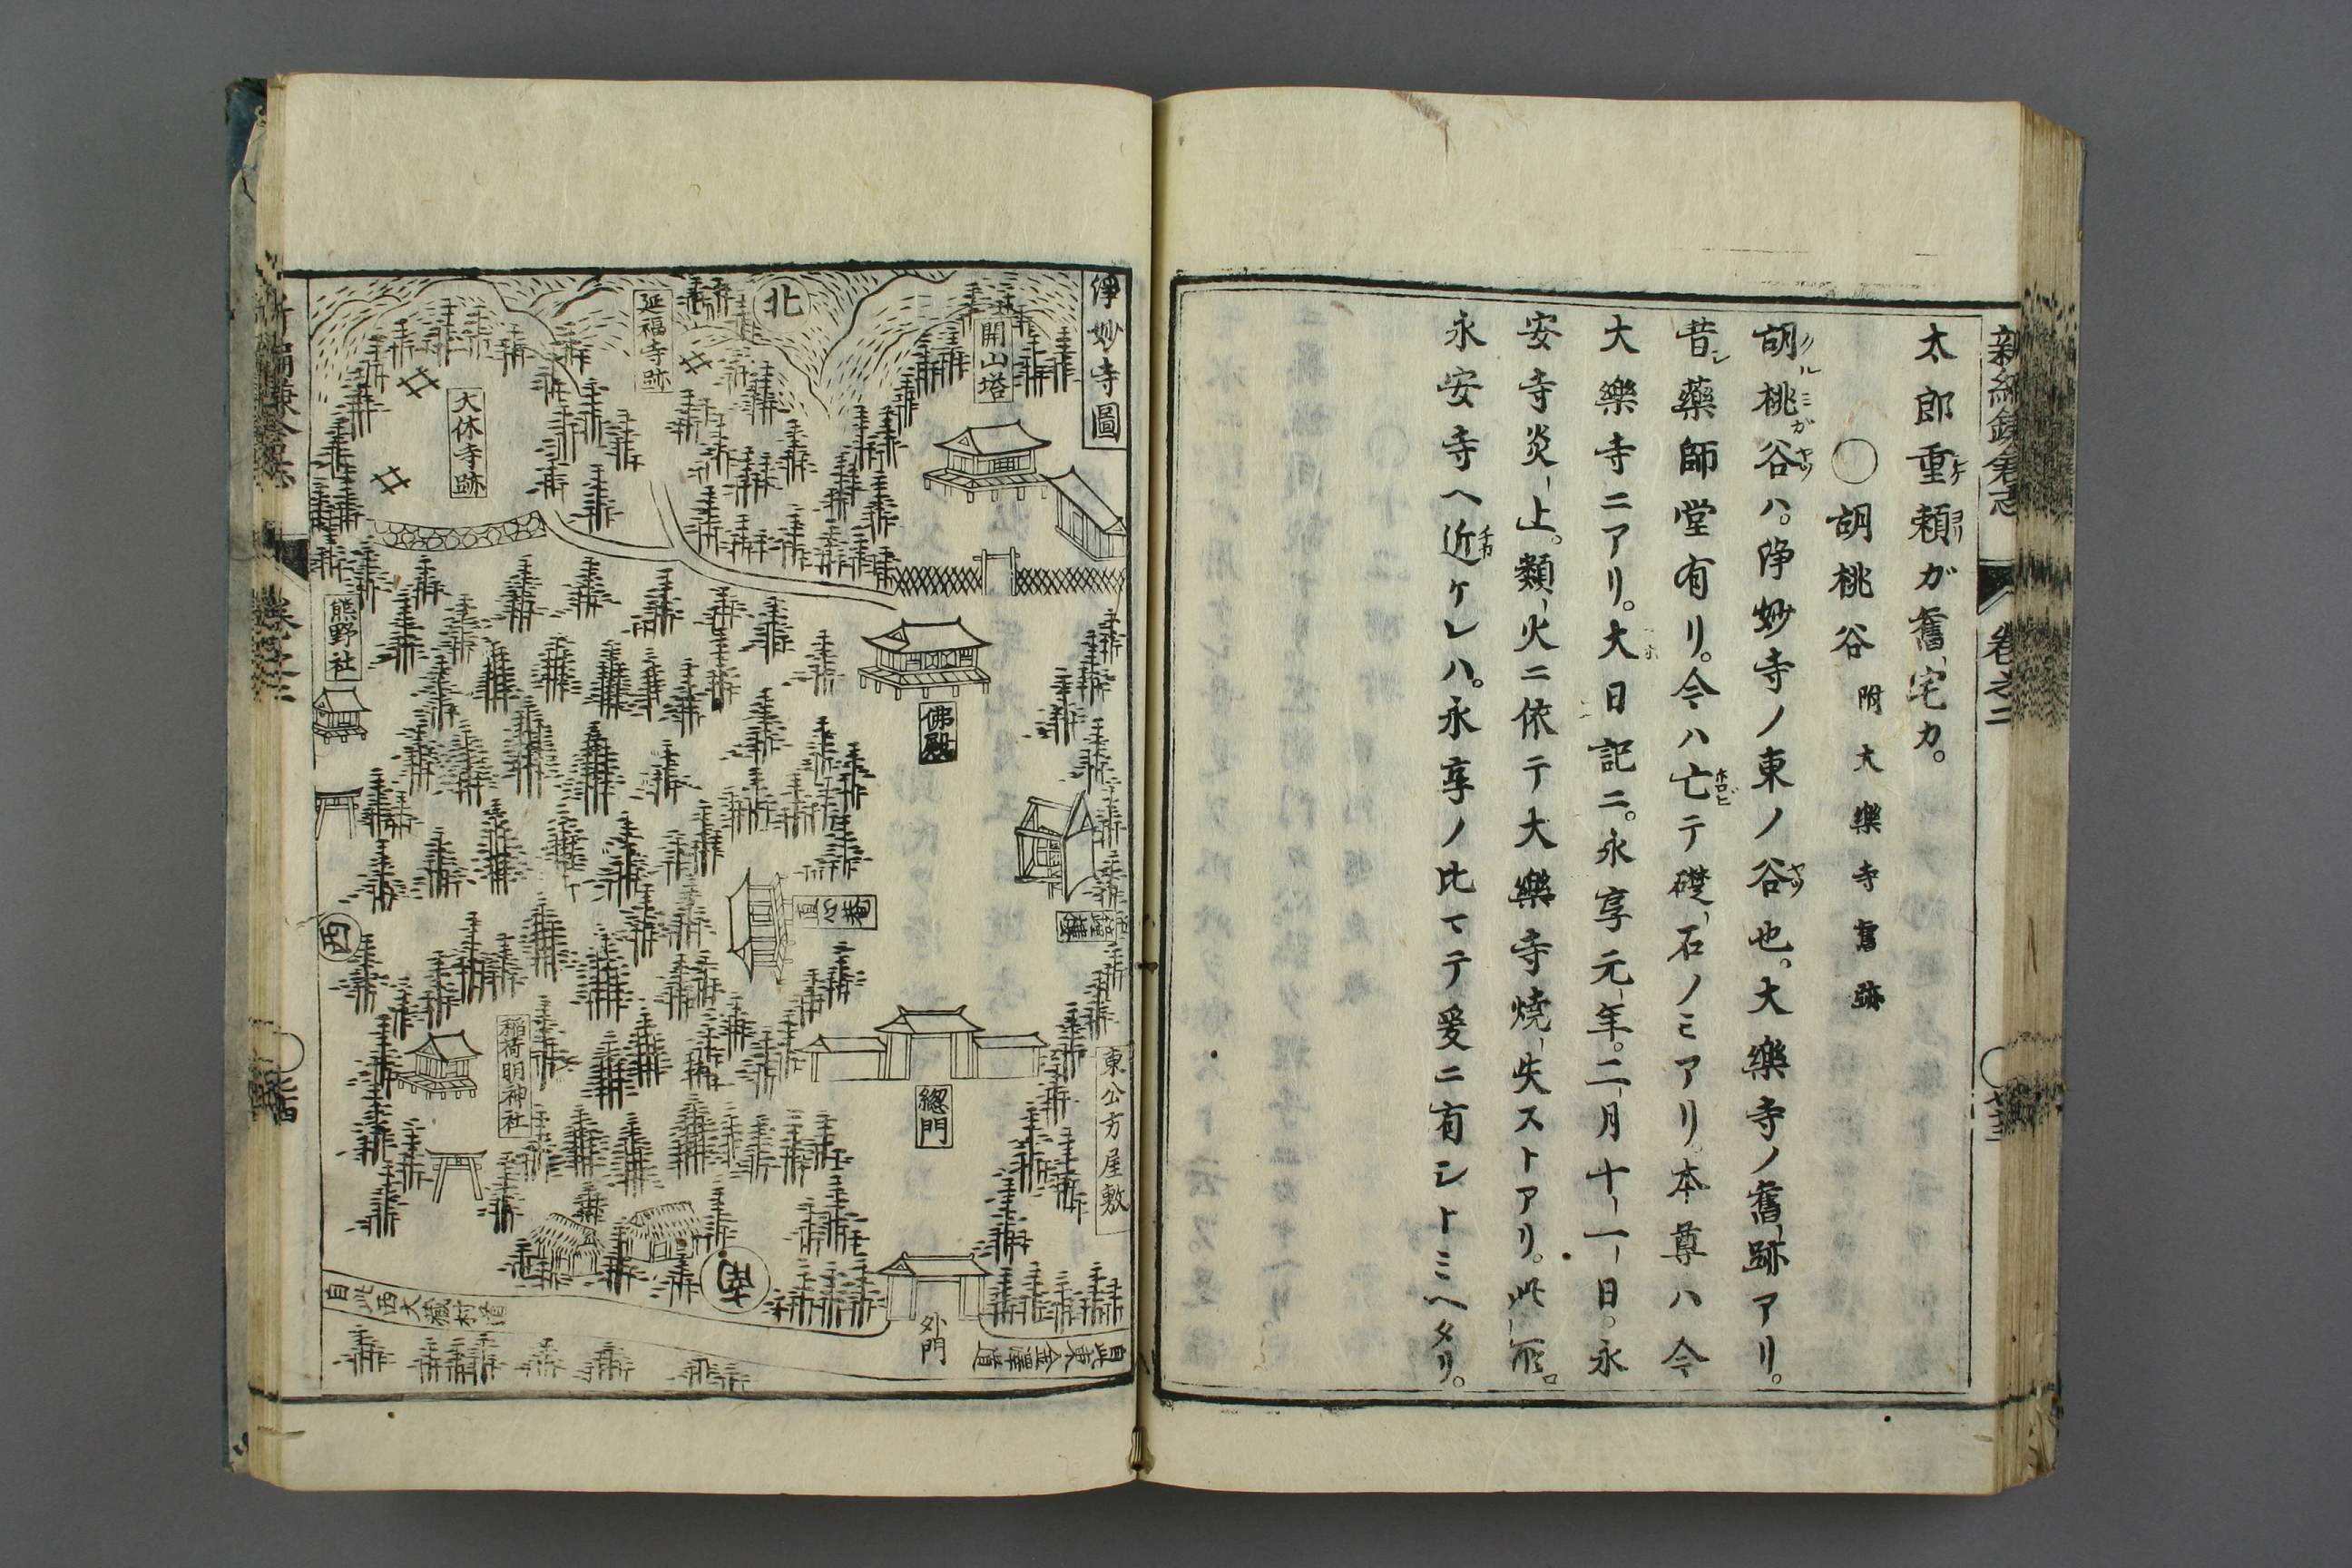 新編鎌倉志
卷之二
太郎重頼ガ舊宅カ。
○胡桃谷 附大樂寺舊跡
胡桃谷ハ。浄妙寺ノ東ノ谷也。大樂寺ノ舊跡アリ。
昔シ藥師堂有リ。今ハ亡テ礎石ノミアリ。本尊ハ今
大樂寺ニアリ。大日記ニ。永享元年。二月十一日。永
安寺炎上。類火ニ依テ大樂寺燒失ストアリ。此所。
永安寺ヘ近ケレハ。永享ノ比マテ爰ニ有シトミヘタリ。
浄妙寺圖
開山塔
北
延福寺跡
大休寺跡
熊野社
佛殿
直心菴
西
稲荷明神社
東公方屋敷
惣門
外門
自此東金澤道
自此西大藏村道